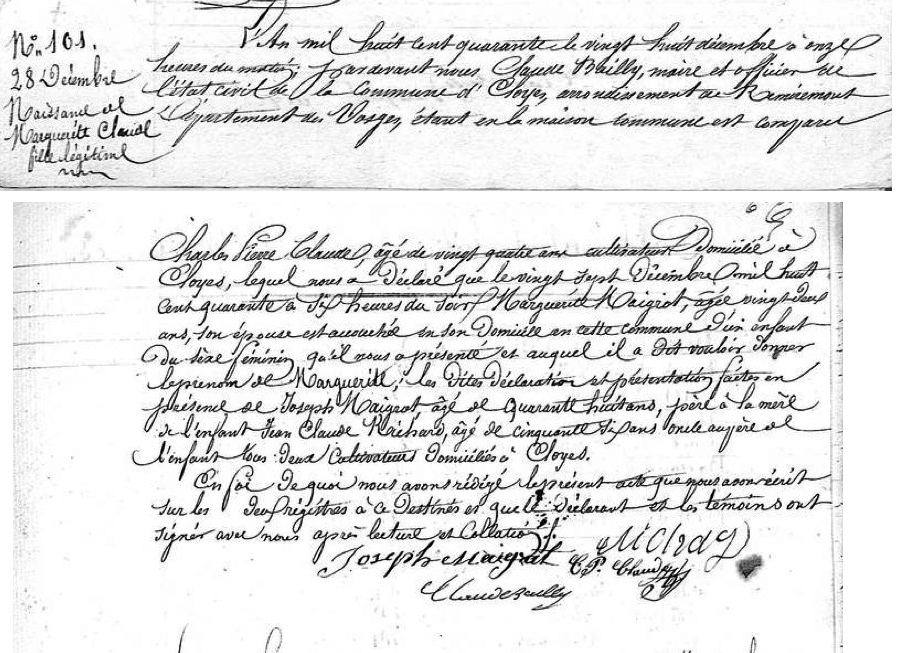 N° 101.
28 Décembre
Naissance de
Marguerite Claude
fille légitime
L'An mil huit cent quarante le vingt huit décembre à onze
heures du matin, pardevant nous Claude Beilly, maire et officier de
l'état civil de la Commune d'Eloyes, arrondissement de Remiremont
Département des Vosges, étant en la maison commune est comparu
Charles Pierre Claude, âgé de vingt quatre ans cultivateur Domicilié à
Eloyes, lequel nous a Déclaré que le vingt sept Décembre mil huit
cent quarante à six heures du soir Marguerite Maigrat, âgée vingt deux
ans, son épouse est accouchée en son Domicile en cette commune d'un enfant
du sèxe féminin qu'il nous a présenté et auquel il a Dit vouloir donner
le prenom de Marguerite; les Dites Déclaration et présentation faites en
présence de Joseph Maigrat âgé de quarante huit ans, père à la mère
de l'enfant Jean Claude Richard, âgé de cinquante six ans oncle au père de
l'enfant tous deux Cultivateurs domiciliés à Eloyes.
En foi de quoi nous avons rédigé le présent acte que nous avons écrit
sur les deux régistres à ce Destinés en que le Déclarant et les témoins ont
signér avec nous après lecture et Collation.
Joseph Maigrat C P. Claude
Claude Beilly